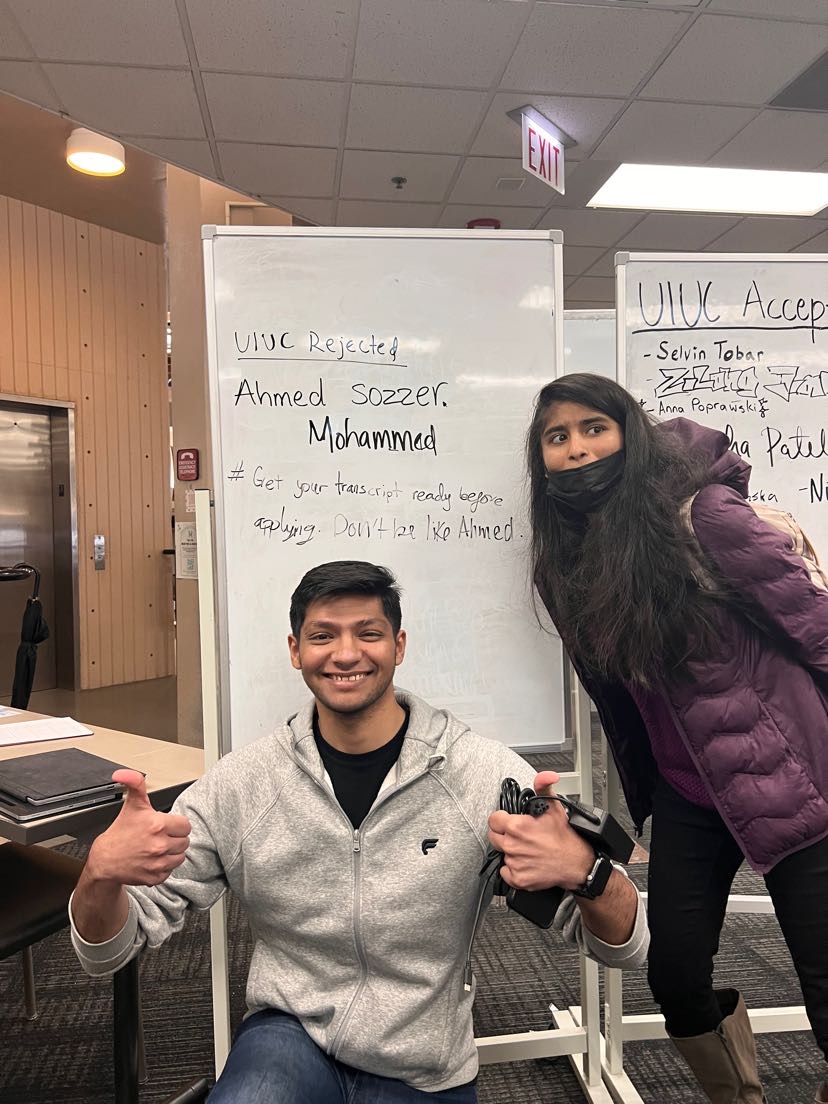 EXIT
UIUC Rejected
Ahmed Sozzer.
Mohammed
# Get your transcript ready before
applying. Don't be like Ahmed.
UIUC Accep
- Selvin Tobar
- Anna Poprawski
ha Patel
- Ni
ska